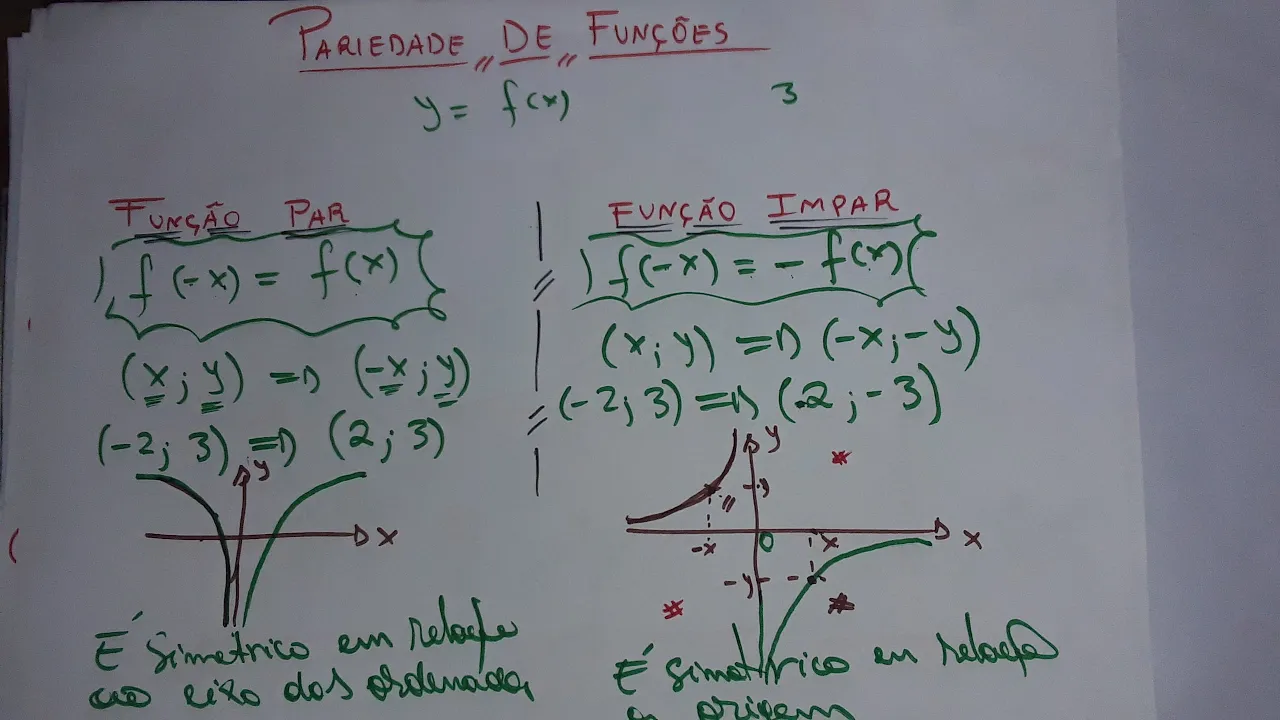 PARIEDADE DE FUNÇÕES
y = f(x) 3
FUNÇÃO PAR
f(-x) = f(x)
(x; y) => (-x; y)
(-2; 3) => (2; 3)
y
x
É simetrico em relação
ao eixo dos ordenada
FUNÇÃO IMPAR
f(-x) = - f(x)
(x; y) => (-x; -y)
(-2; 3) => (2; -3)
y
*
y
-x 0 x x
-y
* *
É simetrico em relação
a origem